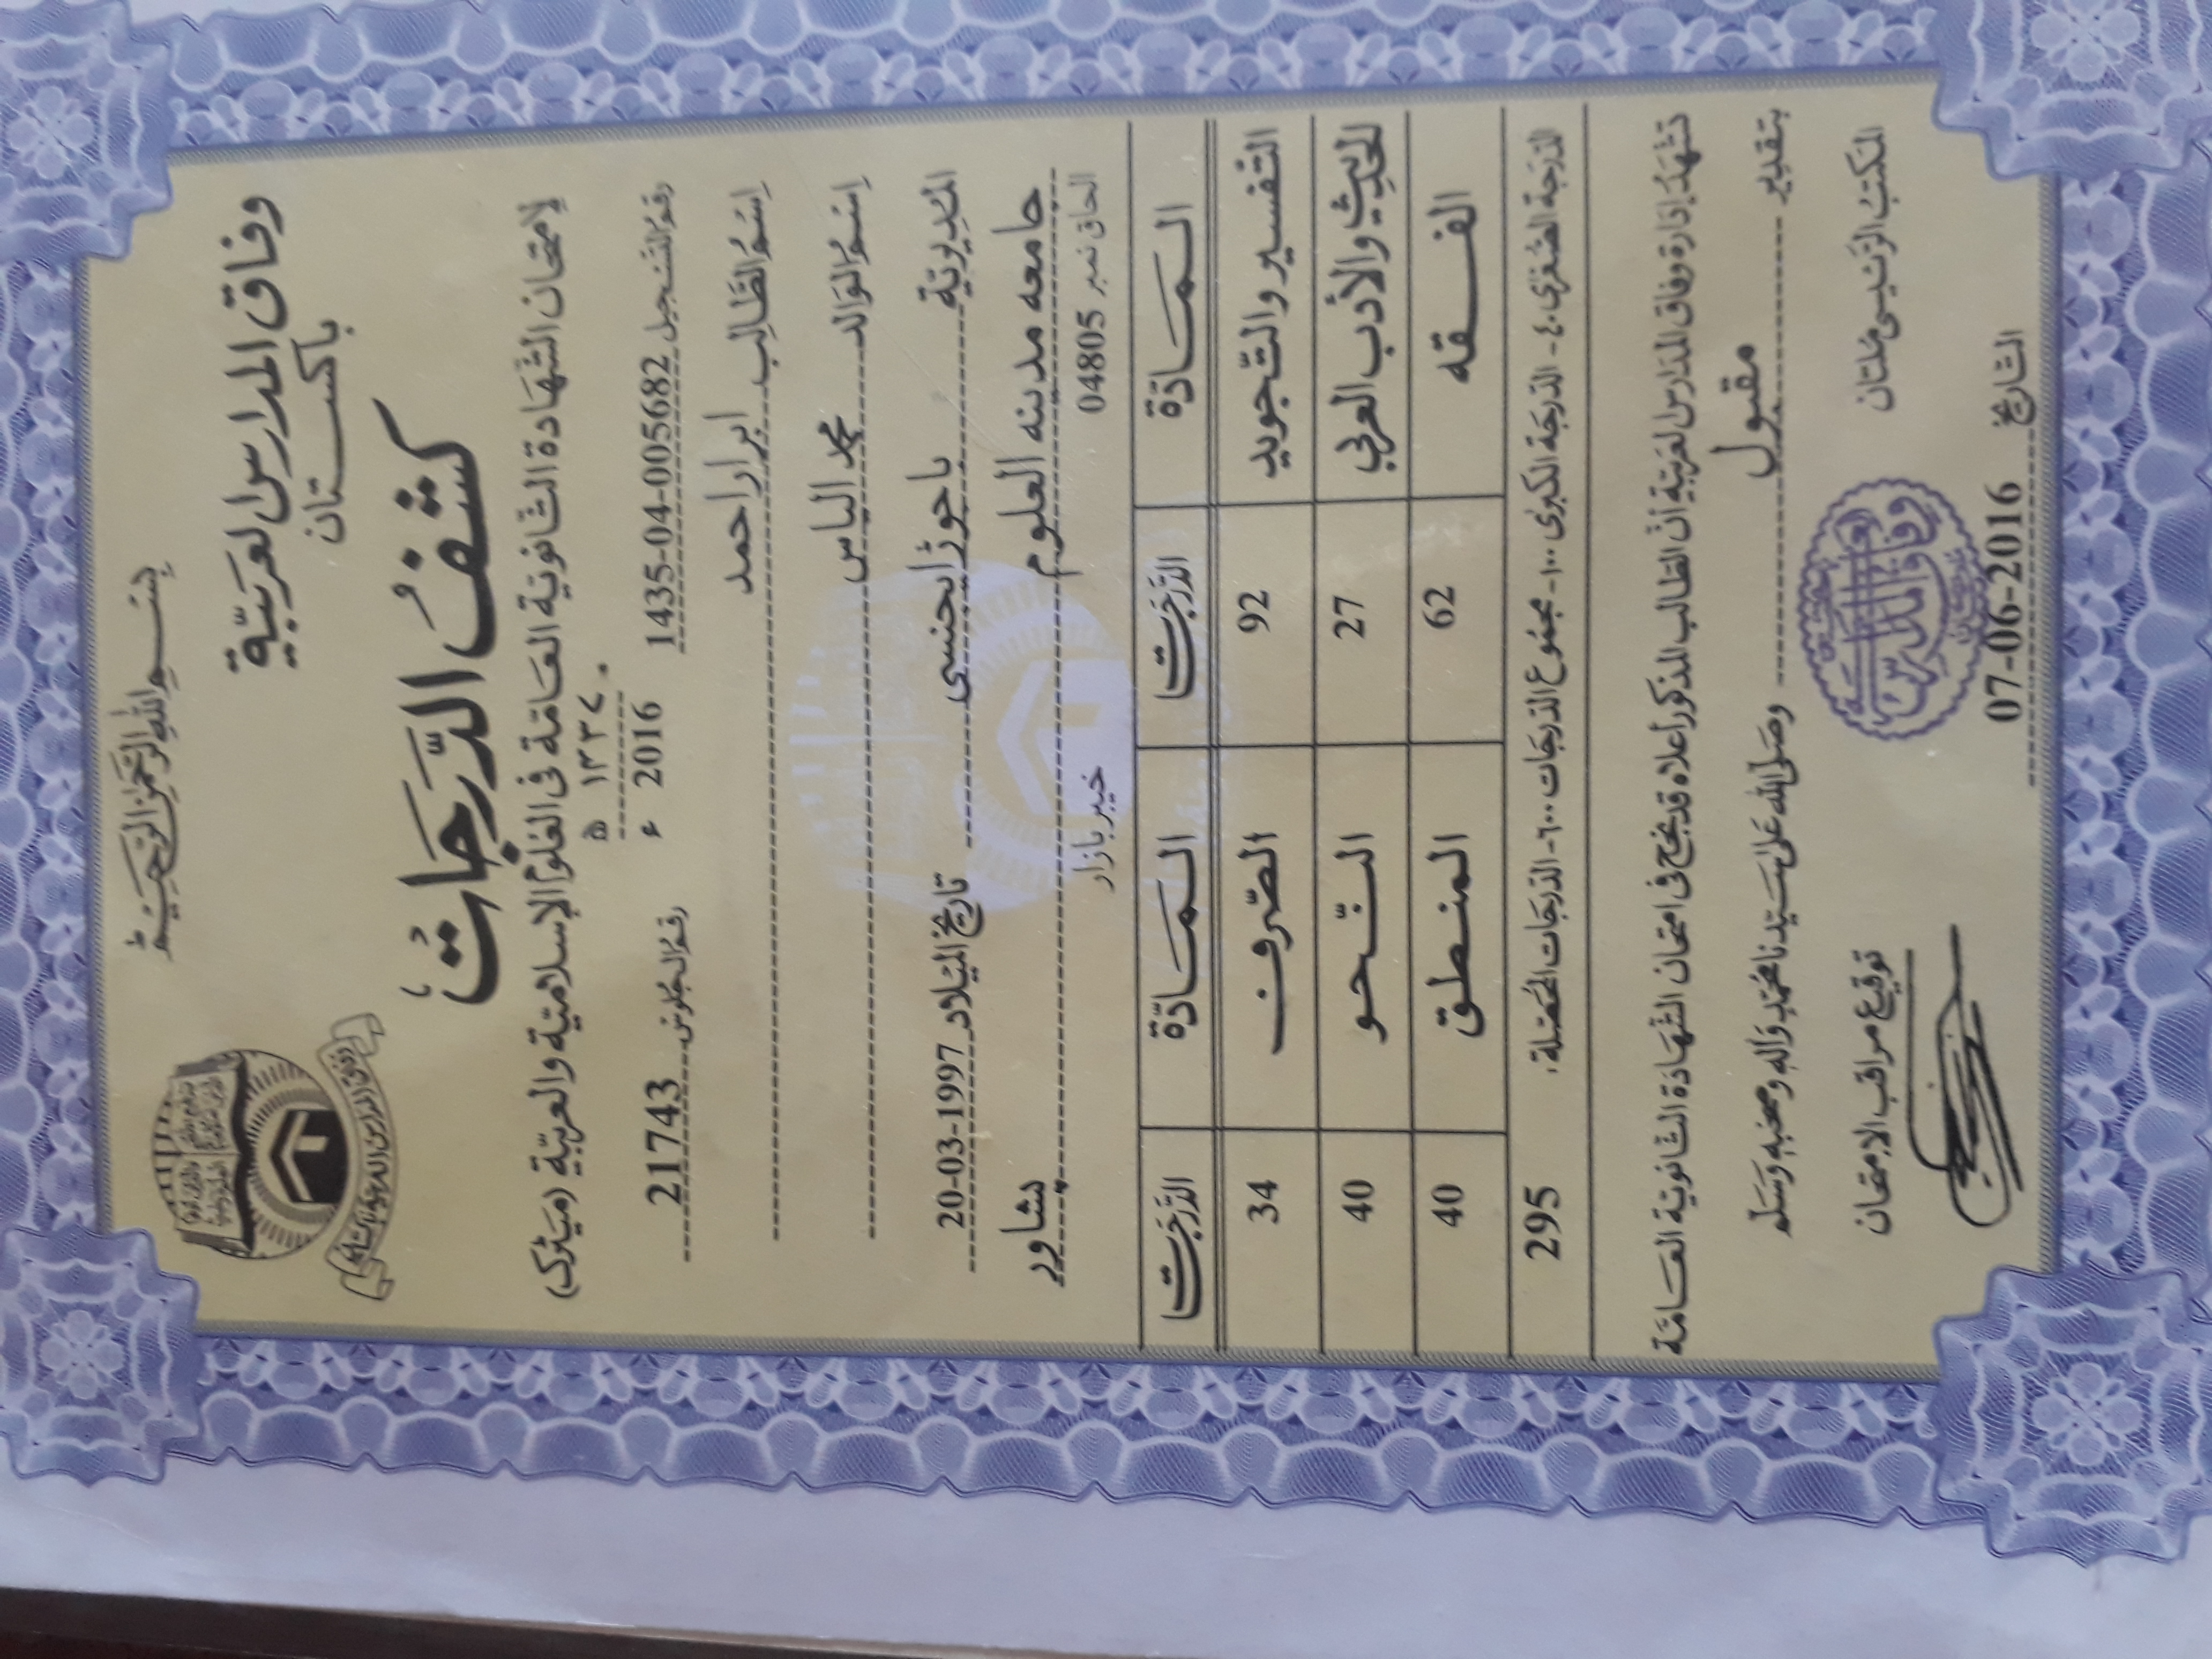 بسم الله الرحمن الرحيم
وفاق المدارس العربية
باكستان
كشف الدرجات
لامتحان الشهادة الثانوية العامة في العلوم الإسلامية والعربية (ميٹرك)
١٤٣٧ ھ
رقم التسجيل 1435-04-005682 2016 ء رقم الجلوس 21743
اسم الطالب ابرار احمد
اسم الوالد محمد الیاس
المديرية باجوڑ ایجنسی تاريخ الميلاد 20-03-1997
جامعه مدینه العلوم پشاور
الحاق نمبر 04805 خیبر بازار
المادة الدرجات المادة الدرجات
التفسير والتجويد 92 الصرف 34
الحديث والأدب العربي 27 النحو 40
الفقه 62 المنطق 40
الدرجة الصغرى ٤٠ - الدرجة الكبرى ١٠٠ - مجموع الدرجات ٦٠٠ - الدرجات المحصلة: 295
تشهد إدارة وفاق المدارس العربية أن الطالب المذكور أعلاه قد نجح في امتحان الشهادة الثانوية العامة
بتقدير مقبول وصلى الله على سيدنا محمد وآله وصحبه وسلم
المكتب الرئيسي ملتان توقيع مراقب الامتحان
التاريخ 07-06-2016